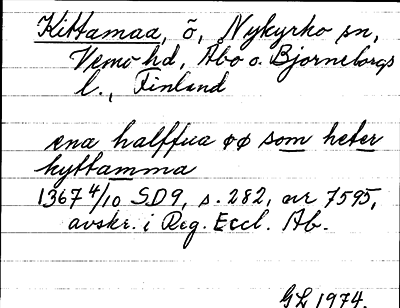 Kittamaa, ö, Nykyrko sn,
Vemo hd, Åbo o. Björneborgs
l., Finland
ena halffua øø som heter
kyttamma
1367 4/10 SD9, s. 282, nr 7595,
avskr. i Reg. Eccl. Ab.
GL 1974.